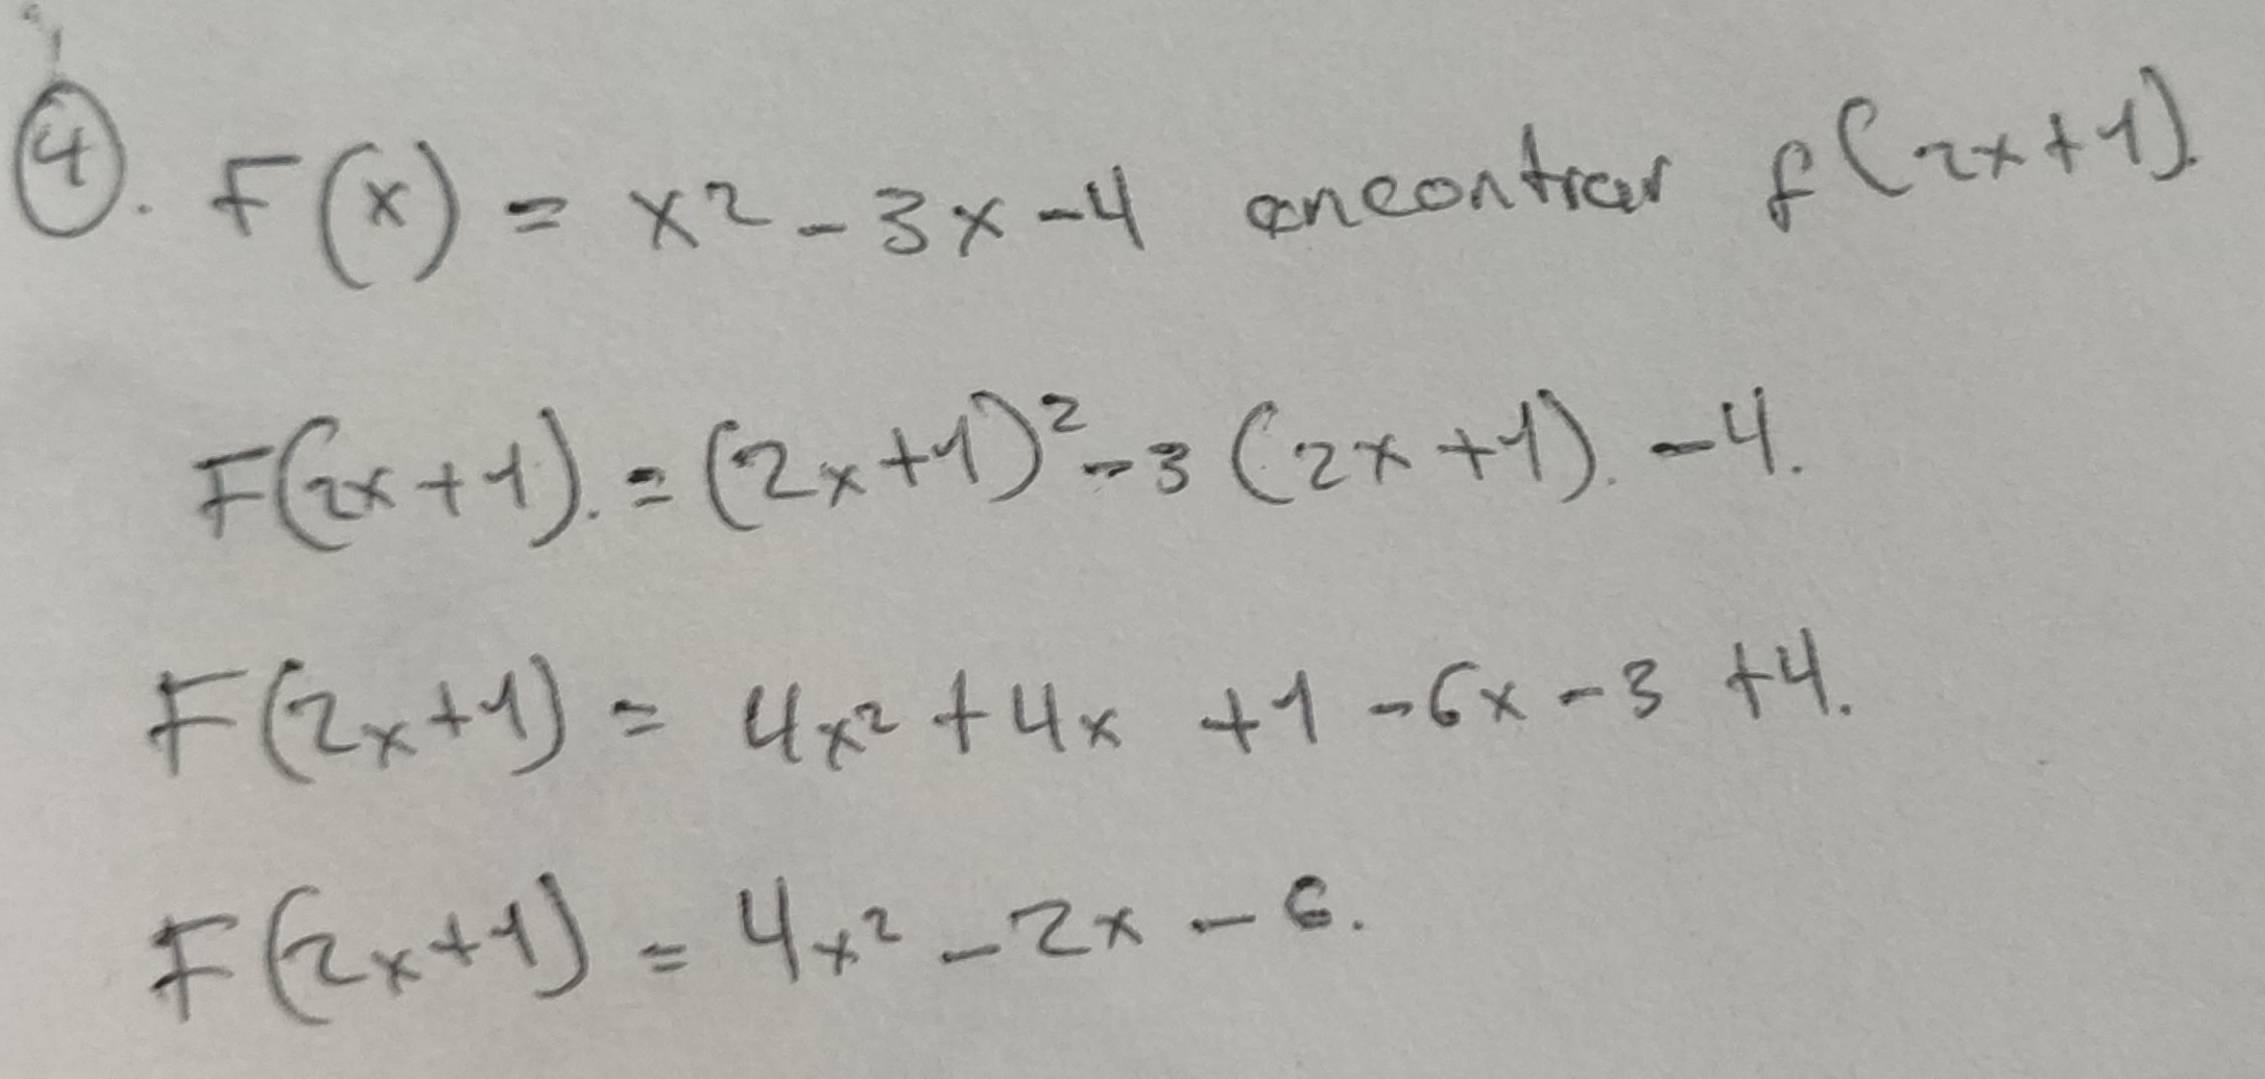 ④. F(x) = x² - 3x - 4 encontrar f(2x+1).
F(2x+1). = (2x+1)² - 3 (2x+1). - 4.
F(2x+1) = 4x² + 4x + 1 - 6x - 3 + 4.
F(2x+1) = 4x² - 2x - 6.